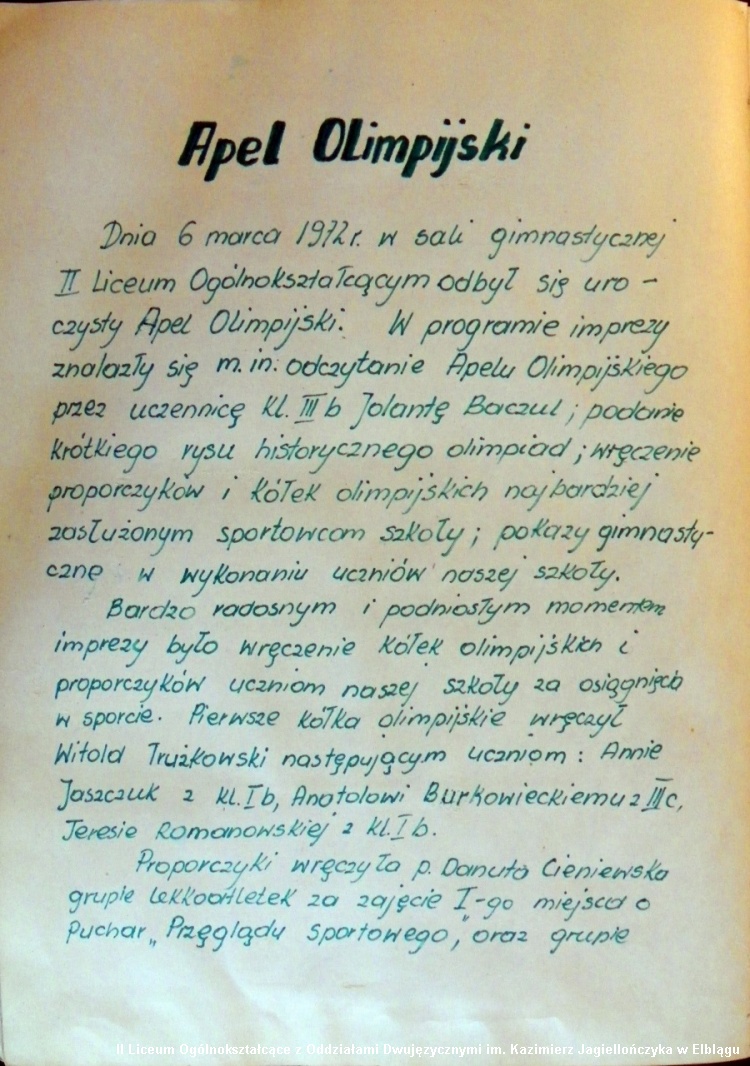 Apel Olimpijski
Dnia 6 marca 1972r. w sali gimnastycznej
II Liceum Ogólnokształcącym odbył się uro-
czysty Apel Olimpijski. W programie imprezy
znalazły się m.in. odczytanie Apelu Olimpijskiego
przez uczennicę kl. III b Jolantę Baczul; podanie
krótkiego rysu historycznego olimpiad; wręczenie
proporczyków i kółek olimpijskich najbardziej
zasłużonym sportowcom szkoły; pokazy gimnasty-
czne w wykonaniu uczniów naszej szkoły.
Bardzo radosnym i podniosłym momentem
imprezy było wręczenie kółek olimpijskich i
proporczyków uczniom naszej szkoły za osiągnięcia
w sporcie. Pierwsze kółka olimpijskie wręczył
Witold Trużkowski następującym uczniom: Annie
Jaszczuk z kl. I b, Anatolowi Burkowieckiemu z III c,
Teresie Romanowskiej z kl. I b.
Proporczyki wręczyła p. Danuta Cieniewska
grupie lekkoatletek za zajęcie I-go miejsca o
Puchar „Przęglądu Sportowego," oraz grupie
II Liceum Ogólnokształcące z Oddziałami Dwujęzycznymi im. Kazimierz Jagiellończyka w Elblągu